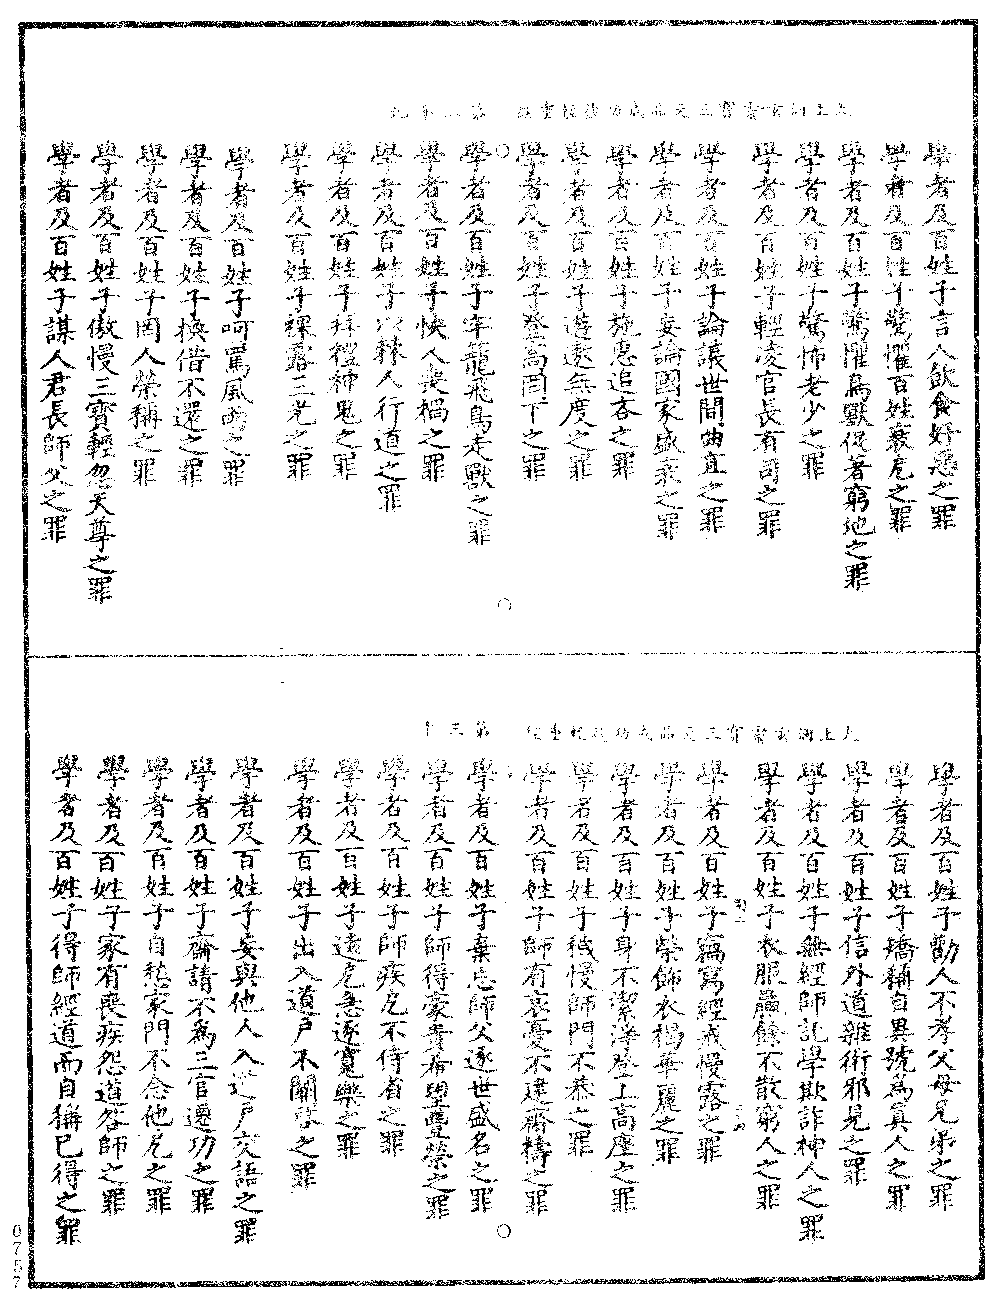 學者及百姓子言人飲食好惡之罪
學者及百姓子驚懼百姓衰厄之罪
學者及百姓子驚懼鳥獸促著窮地之罪
學者及百姓子驚怖老少之罪
學者及百姓子輕凌官長有司之罪
學者及百姓子論議世間曲直之罪
學者及百姓子妄論國家盛衰之罪
學者及百姓子施惠追吝之罪
學者及百姓子遊遨無度之罪
學者及百姓子登高罔下之罪
學者及百姓子牢籠飛鳥走獸之罪
學者及百姓子快人喪禍之罪
學者及百姓子 棘人行道之罪
學者及百姓子拜禮神鬼之罪
學者及百姓子裸露三光之罪
學者及百姓子呵罵風雨之罪
學者及百姓子換借不還之罪
學者及百姓子罔人榮稱之罪
學者及百姓子傲慢三寶輕忽天尊之罪
學者及百姓子謀人君長師父之罪
第三十
學者及百姓子勸人不孝父母兄弟之罪
學者及百姓子矯稱自異號為真人之罪
學者及百姓子信外道雜術邪見之罪
學者及百姓子無經師託學欺詐神人之罪
學者及百姓子衣服麤餘不散窮人之罪
學者及百姓子竊寫經戒慢露之罪
學者及百姓子榮飾衣褐華麗之罪
學者及百姓子身不潔淨登上高座之罪
學者及百姓子穢慢師門不恭之罪
學者及百姓子師有哀憂不建齋禱之罪
學者及百姓子棄忘師父逐世盛名之罪
學者及百姓子師得豪貴希望豐榮之罪
學者及百姓子師疾厄不侍省之罪
學者及百姓子遠厄急逐寬樂之罪
學者及百姓子出入道戶不關啓之罪
學者及百姓子妄與他人入道戶交語之罪
學者及百姓子齋請不為三官遷功之罪
學者及百姓子自愁家門不念他厄之罪
學者及百姓子家有喪疾怨道咎師之罪
學者及百姓子得師經道而自稱已得之罪
0757